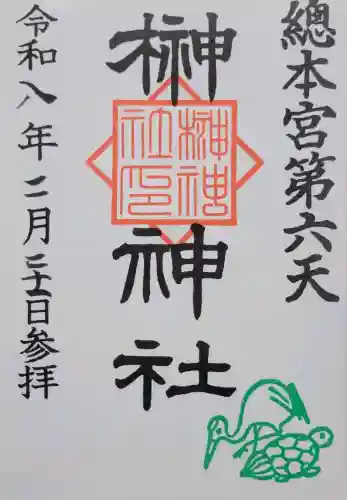 總本宮第六天
榊神社
榊神社印
令和八年二月二十一日参拝